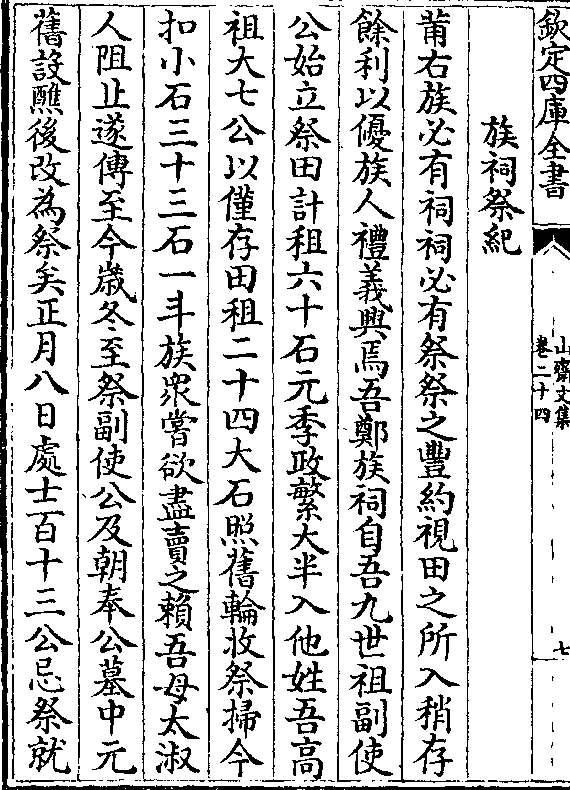 欽定四庫全書
山齋文集
卷二十四
七
族祠祭紀
莆右族必有祠祠必有祭祭之豐約視田之所入稍存
餘利以優族人禮義興焉吾鄭族祠自吾九世祖副使
公始立祭田計租六十石元季政繁大半入他姓吾高
祖大七公以僅存田租二十四大石照舊輪收祭掃今
扣小石三十三石一斗族衆嘗欲盡賣之賴吾母太淑
人阻止遂傳至今歲冬至祭副使公及朝奉公墓中元
舊設醮後改為祭矣正月八日處士百十三公忌祭就